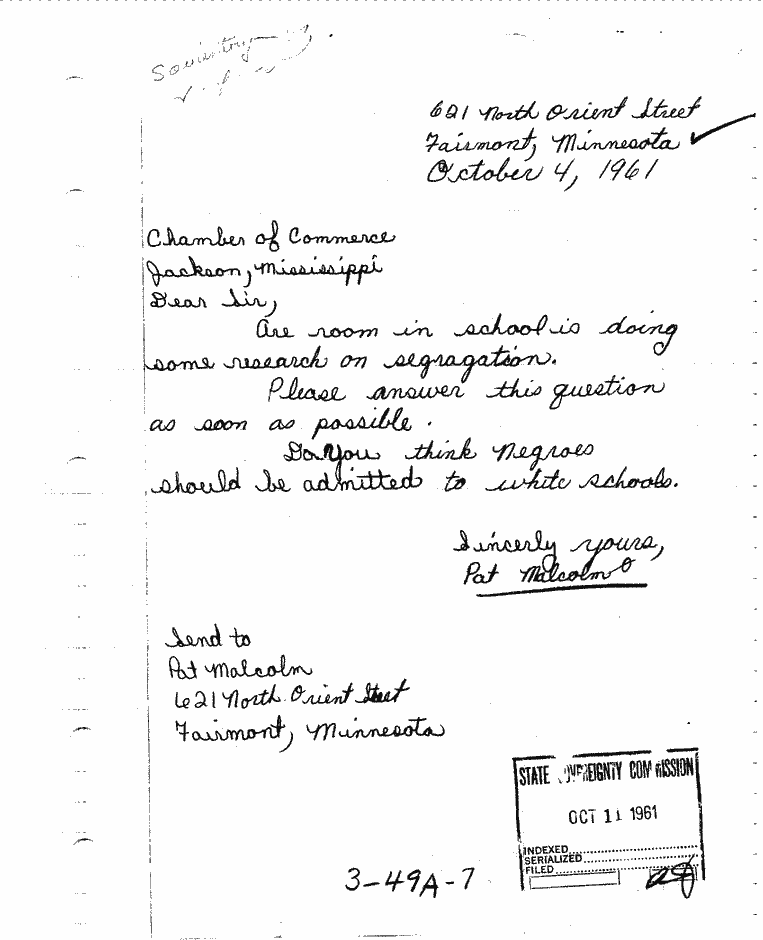 621 North Orient Street
Fairmont, Minnesota
October 4, 1961
Chamber of Commerce
Jackson, Mississippi
Dear Sir,
Are room in school is doing
some research on segragation.
Please answer this question
as soon as possible.
Do You think Negroes
should be admitted to white schools.
Sincerly yours,
Pat Malcolm
Send to
Pat Malcolm
621 North Orient Street
Fairmont, Minnesota
STATE SOVEREIGNTY COMMISSION
OCT 11 1961
INDEXED
SERIALIZED
FILED
3-49A-7